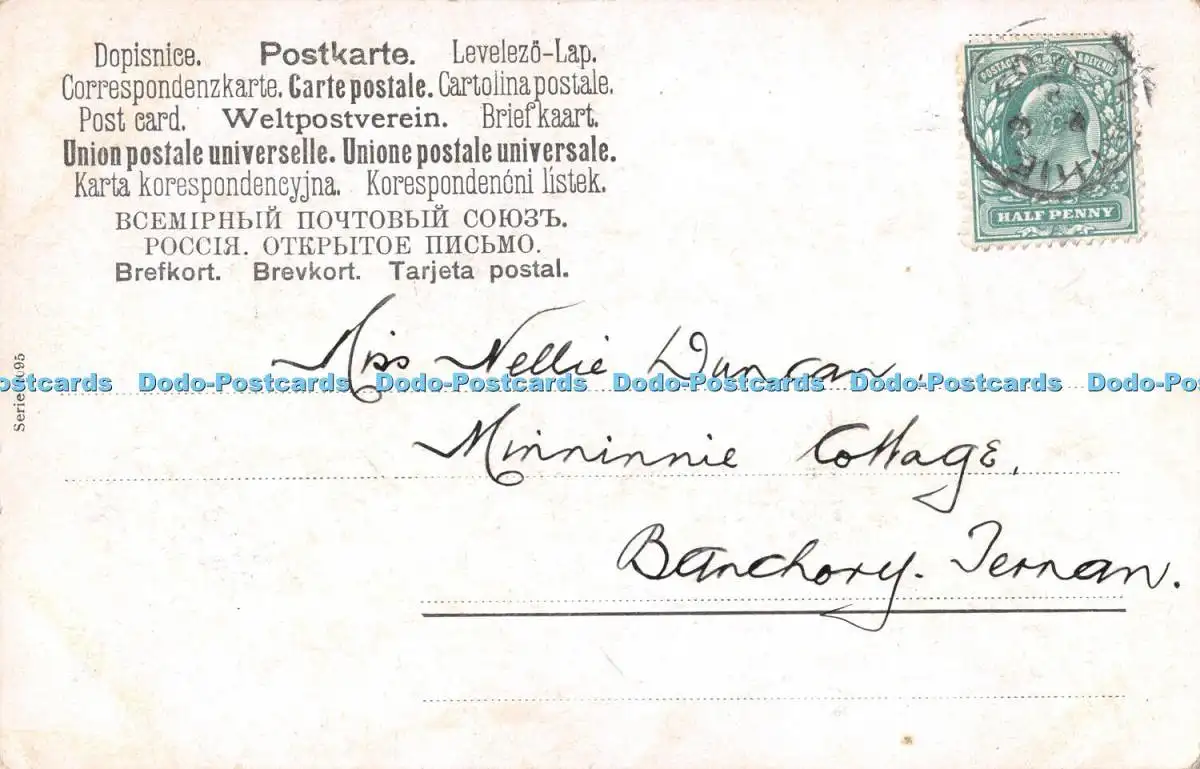 Dopisnice. Postkarte. Levelező-Lap.
Correspondenzkarte. Carte postale. Cartolina postale.
Post card. Weltpostverein. Briefkaart.
Union postale universelle. Unione postale universale.
Karta korespondencyjna. Korespondenčni listek.
ВСЕМІРНЫЙ ПОЧТОВЫЙ СОЮЗЪ.
РОССІЯ. ОТКРЫТОЕ ПИСЬМО.
Brefkort. Brevkort. Tarjeta postal.
POSTAGE & REVENUE
HALF PENNY
Miss Nellie Duncan.
Dodo-Postcards Dodo-Postcards Dodo-Postcards Dodo-Postcards
Minninnie Cottage.
Banchory-Ternan.